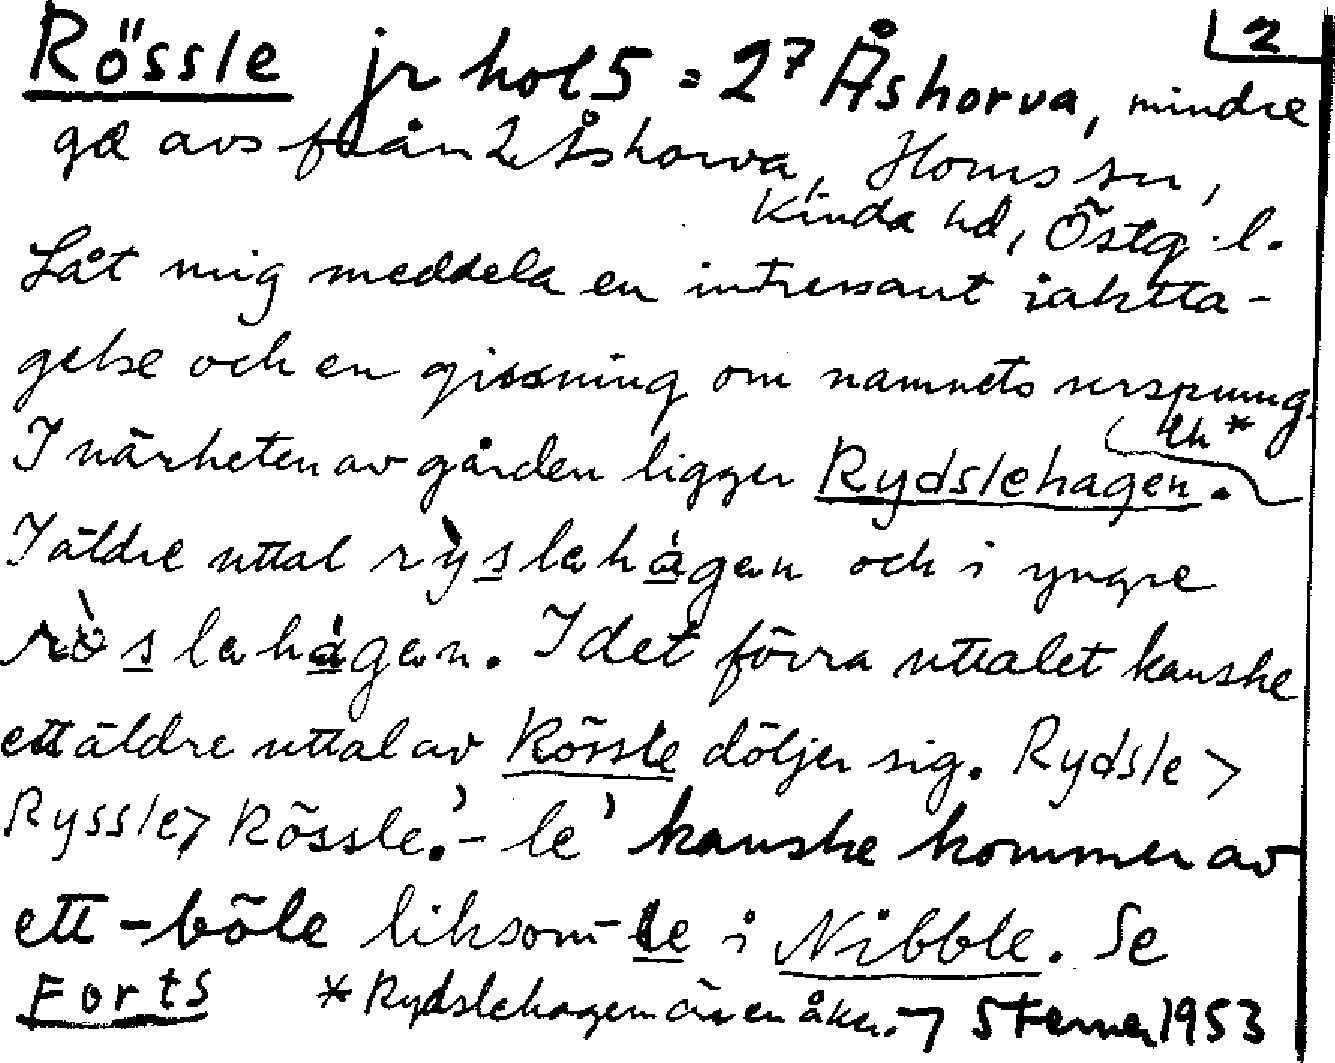 2
Rössle jr hot 5 = 2⁷ Åshorva, mindre
gd avs från 2 Åshorva, Horns sn,
Kinda hd, Östg. l.
Låt mig meddela en intressant iaktta-
gelse och en gissning om namnets ursprung.
I närheten av gården ligger Rydslehagen.
*
I äldre uttal rỳslehågen och i yngre
rö̀slehågen. I det förra uttalet kanske
ett äldre uttal av Rössle döljer sig. Rydsle >
Ryssle > Rössle. '-le' kanske kommer av
ett -böle liksom -le i Nibble. Se
Forts * Rydslehagen är en åker. - Sterner 1953